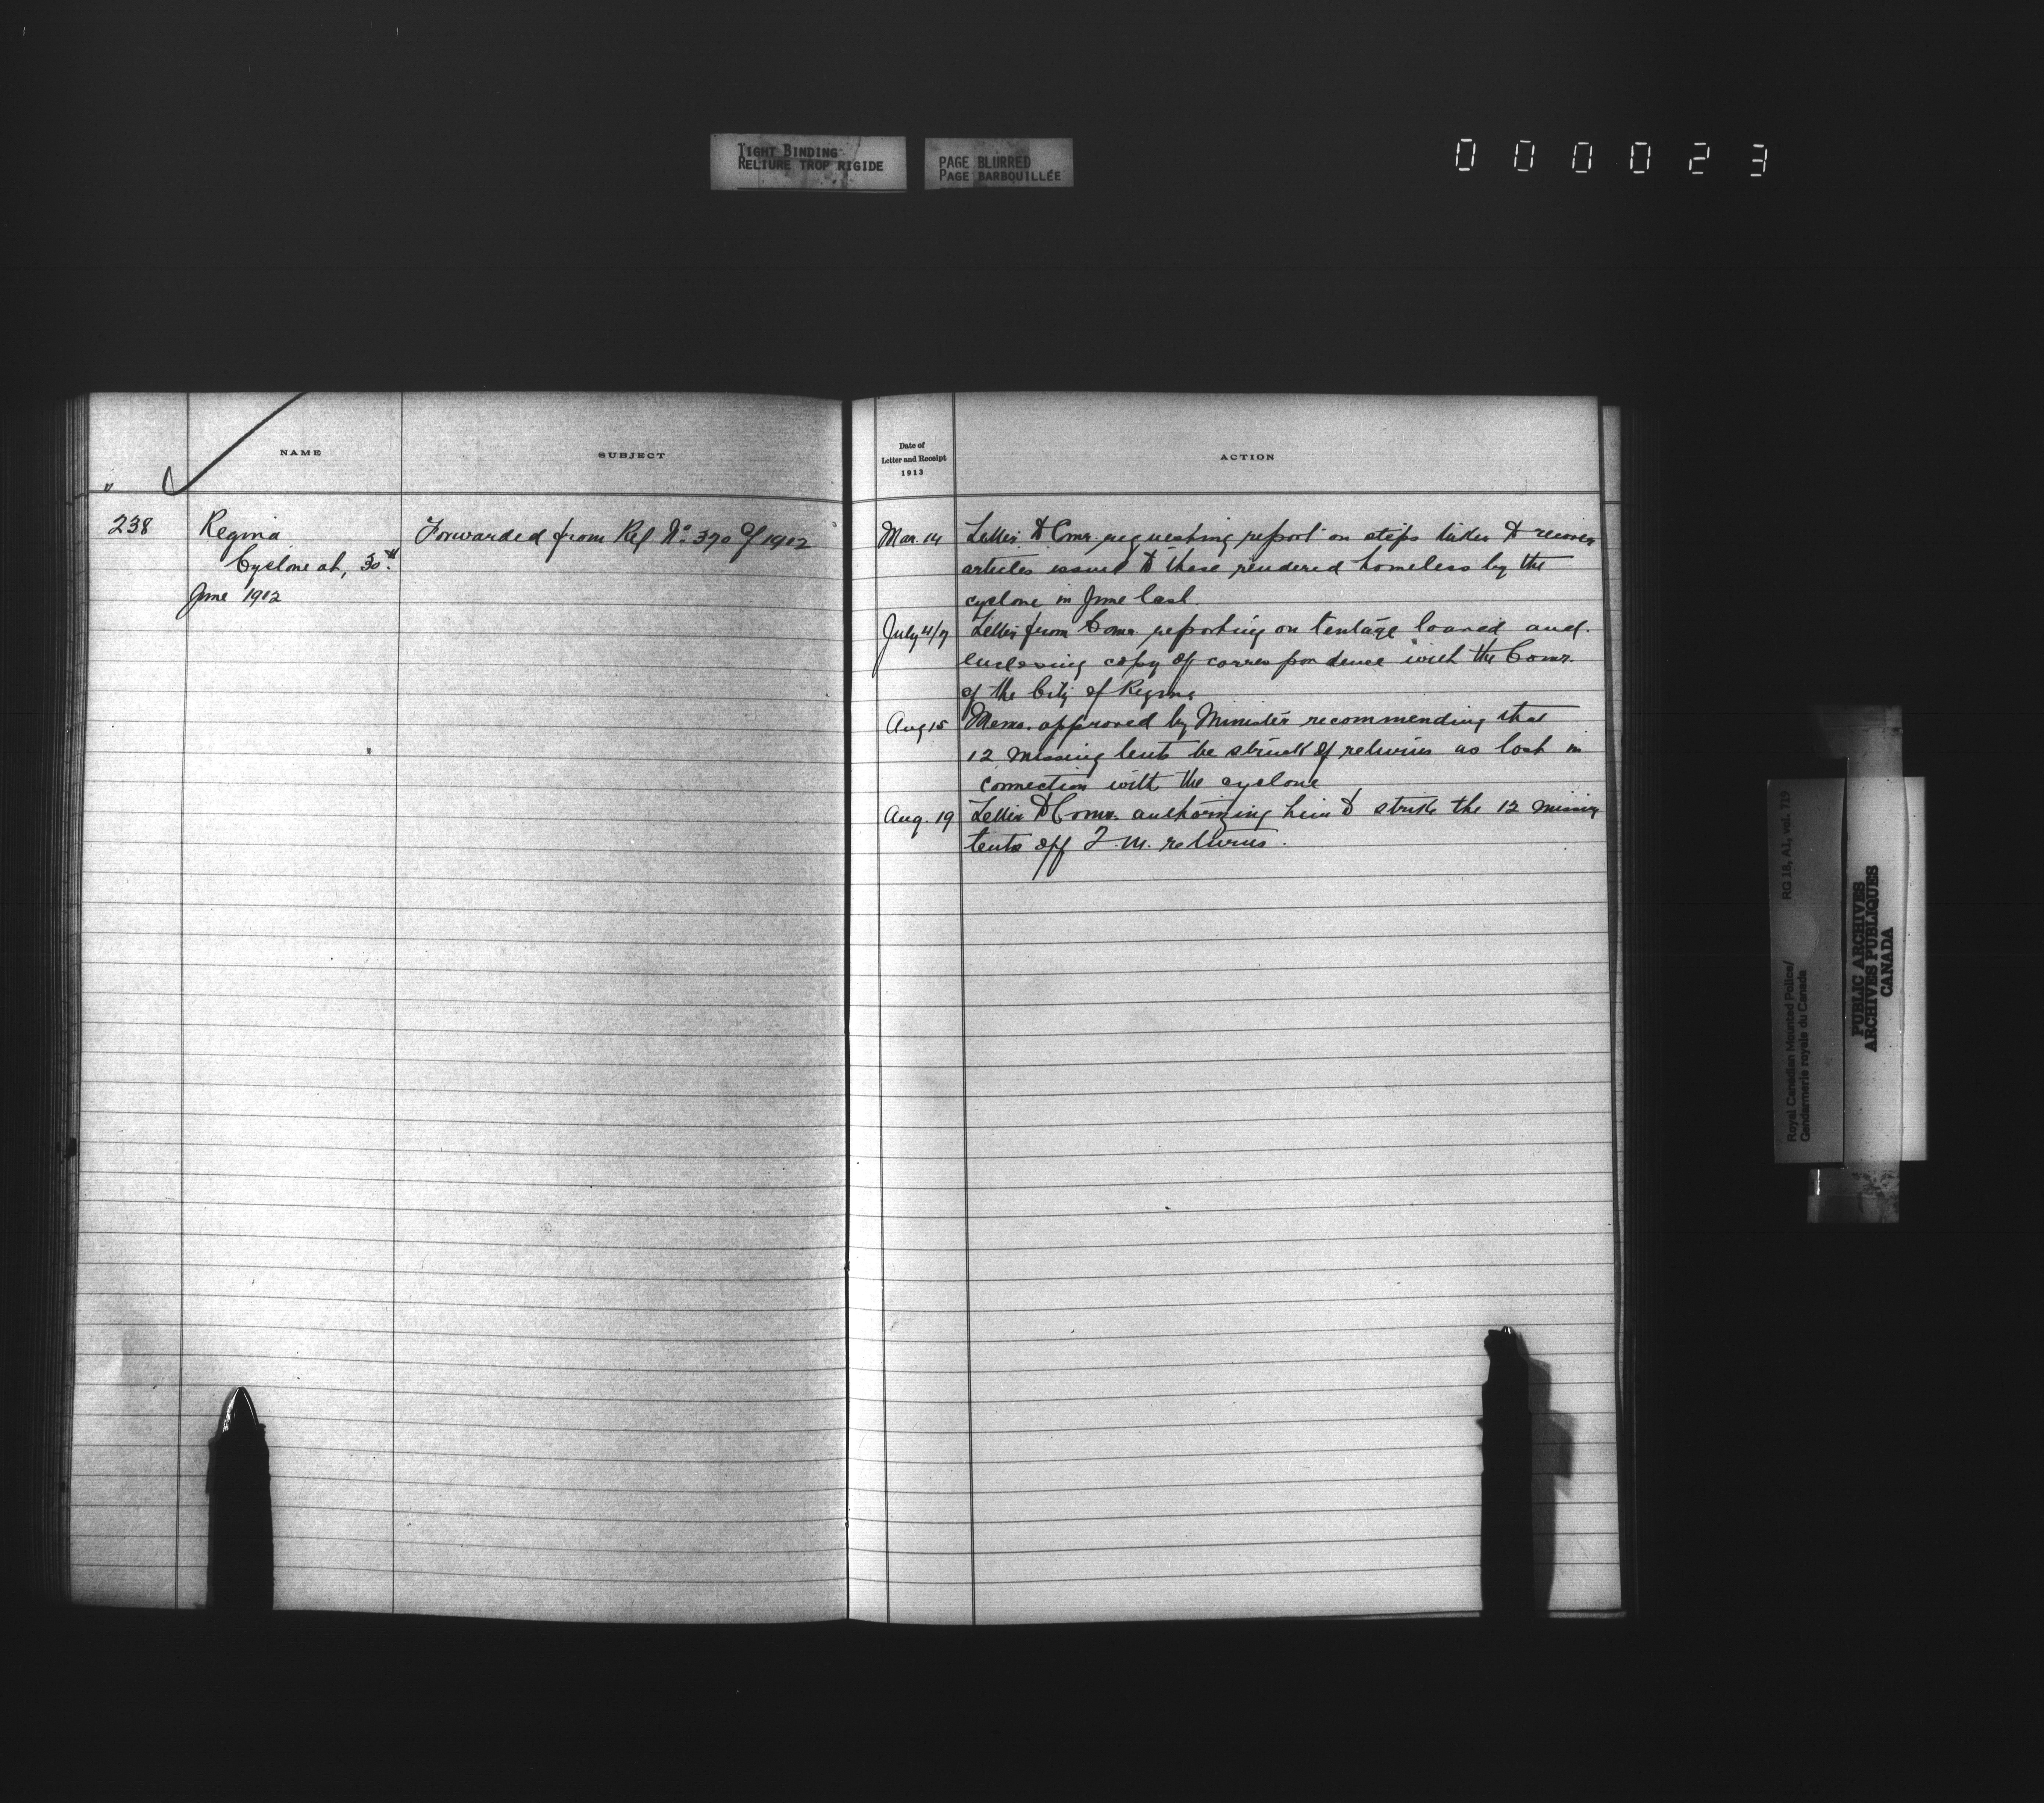 TIGHT BINDING
RELIURE TROP RIGIDE
PAGE BLURRED
PAGE BARBOUILLÉE
000023
NAME
SUBJECT
238
Regina
Cyclone at, 30th
June 1912
Forwarded from Ref No. 370 of 1912
Date of
Letter and Receipt
1913
ACTION
Mar. 14 Letter to Comr. requesting report on steps taken to recover
articles issued to those rendered homeless by the
cyclone in June last.
July 4/7 Letter from Comr. reporting on tentage loaned and
enclosing copy of correspondence with the Comr.
of the City of Regina
Aug 15 Memo. approved by Minister recommending that
12 missing tents be struck off returns as lost in
connection with the cyclone
Aug. 19 Letter to Comr. authorizing him to strike the 12 missing
tents off Q.M. returns.
Royal Canadian Mounted Police/
Gendarmerie royale du Canada
RG 18, A1, vol. 719
PUBLIC ARCHIVES
ARCHIVES PUBLIQUES
CANADA